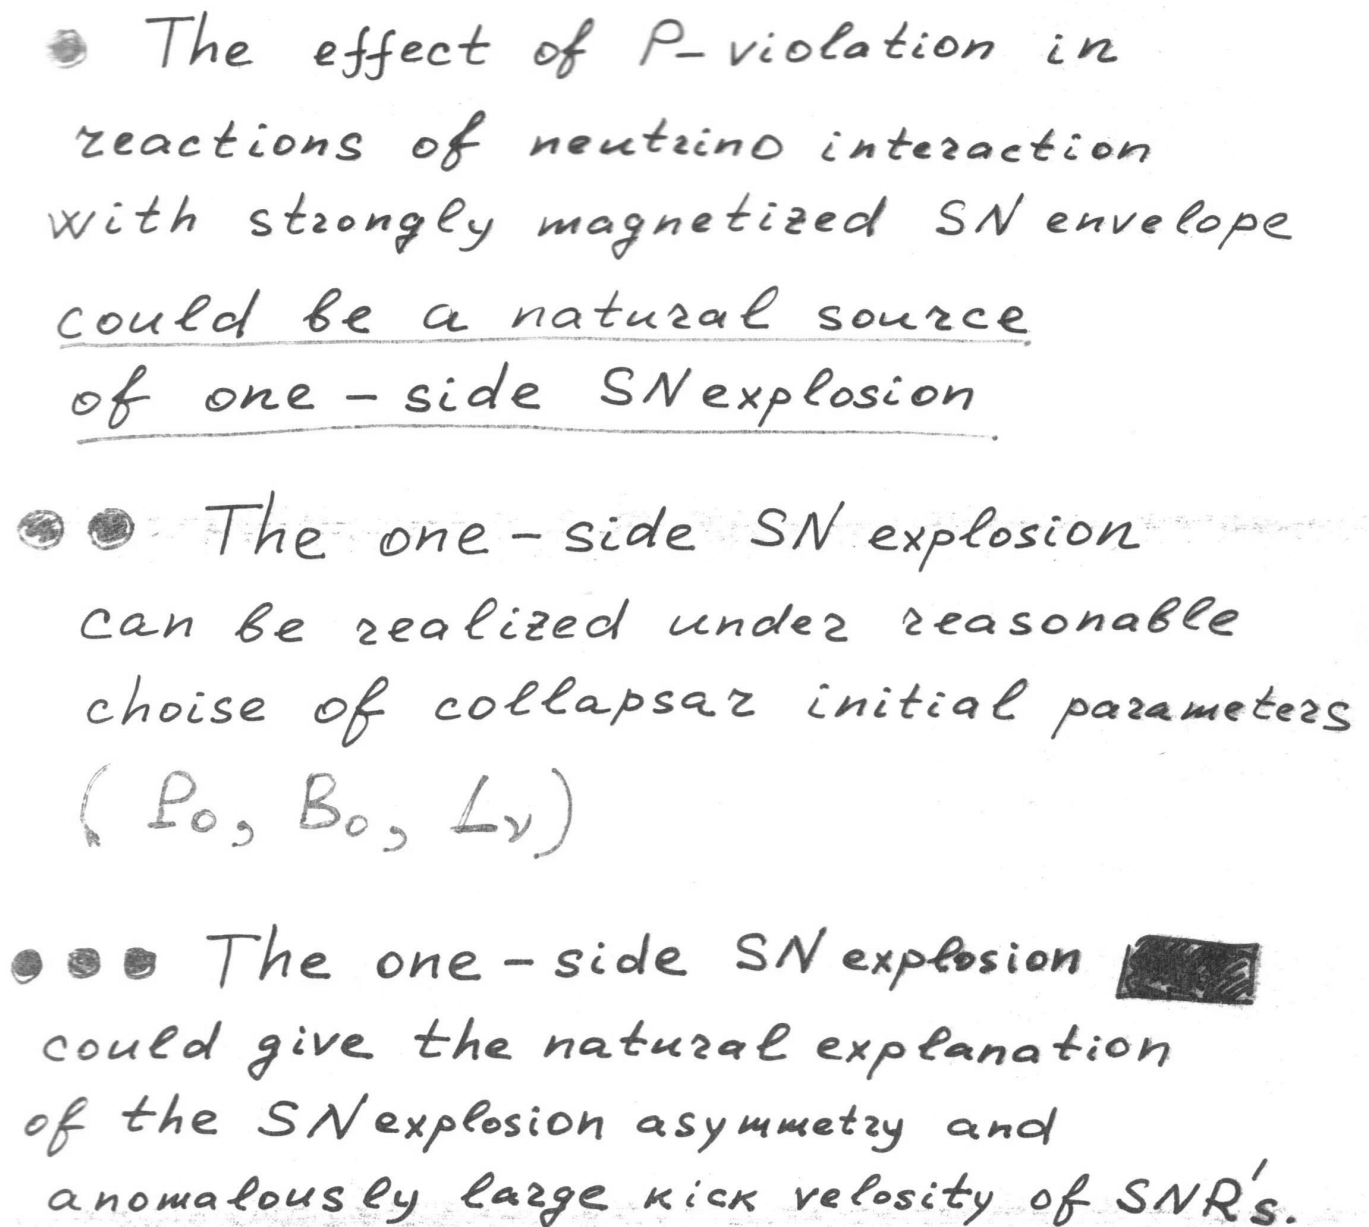 ● The effect of P-violation in
reactions of neutrino interaction
with strongly magnetized SN envelope
could be a natural source
of one-side SN explosion.
●● The one-side SN explosion
can be realized under reasonable
choise of collapsar initial parameters
(P₀, B₀, Lᵥ)
●●● The one-side SN explosion
could give the natural explanation
of the SN explosion asymmetry and
anomalously large kick velosity of SNR's.